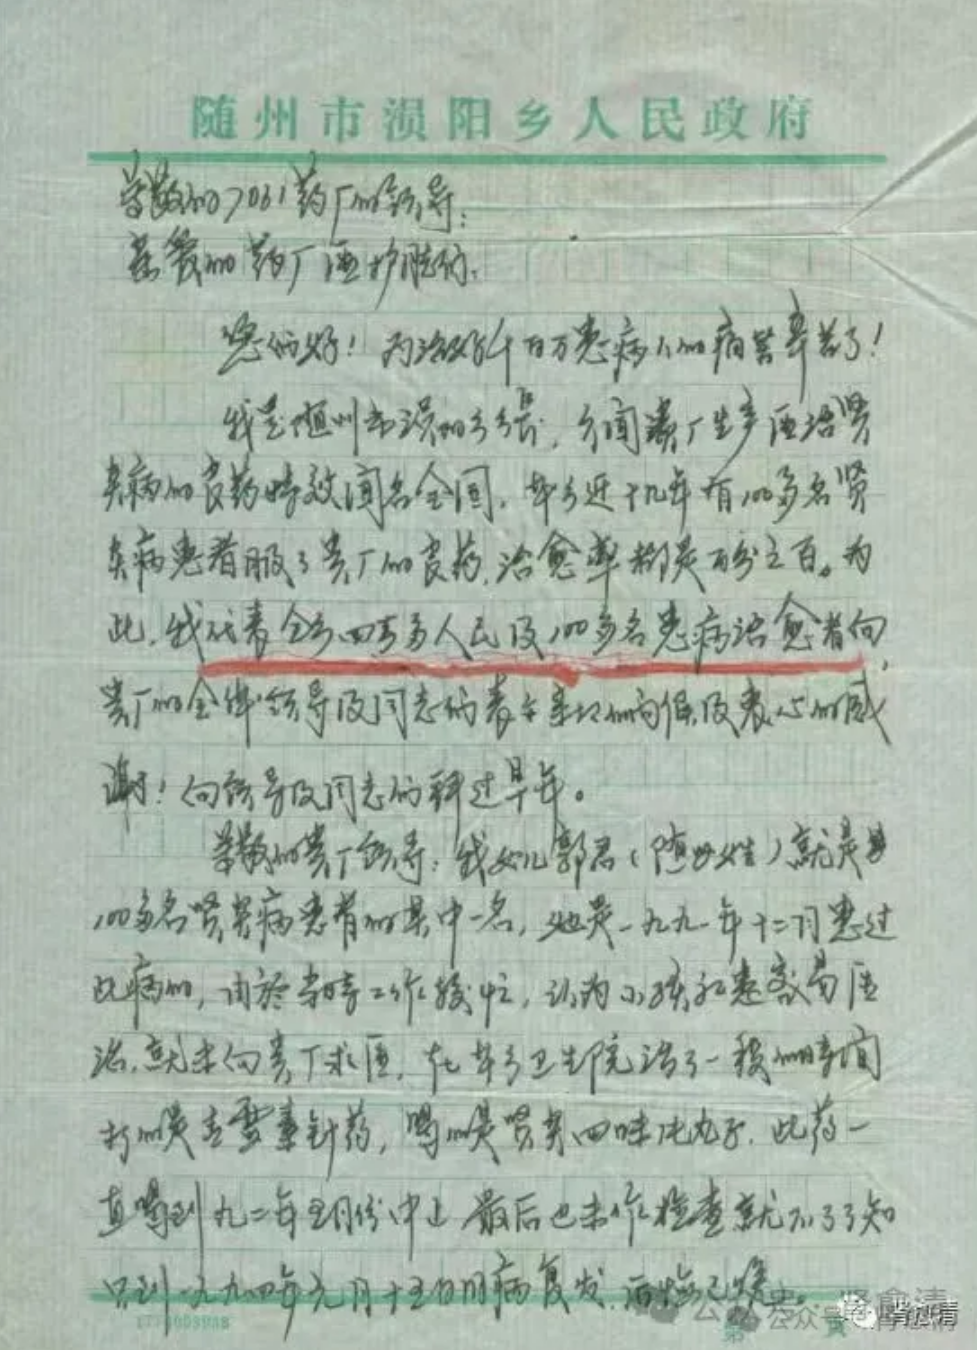 随州市涢阳乡人民政府
尊敬的7061药厂的领导：
亲爱的药厂医护战们：
您们好！为治好千百万患病人的病苦辛苦了！
我是随州市涢阳乡乡长，今闻贵厂生产医治肾
炎病的良药特效闻名全国，本乡近十几年有100多名肾
炎病患者服了贵厂的良药，治愈率都是百分之百。为
此，我代表全乡四万多人民及100多名患病治愈者向
贵厂的全体领导及同志们表示亲切的问候及衷心的感
谢！向领导及同志们拜过早年。
尊敬的贵厂领导：我女儿郭君（随母姓）就是
100多名肾炎病患者的其中一名，她是一九九一年十二月患过
此病的，由於当时工作较忙，认为小孩初患容易医
治，就未向贵厂求医，在本乡卫生院治了一段的时间
打的是青霉素针药，喝的是肾炎四味化丸子，此药一
直喝到九二年五月份中止 最后也未作检查就不了了知
只到一九九四年元月十五日旧病复发，后悔已晚。
1773003938
第 页
公众号 肾愈清
肾愈清